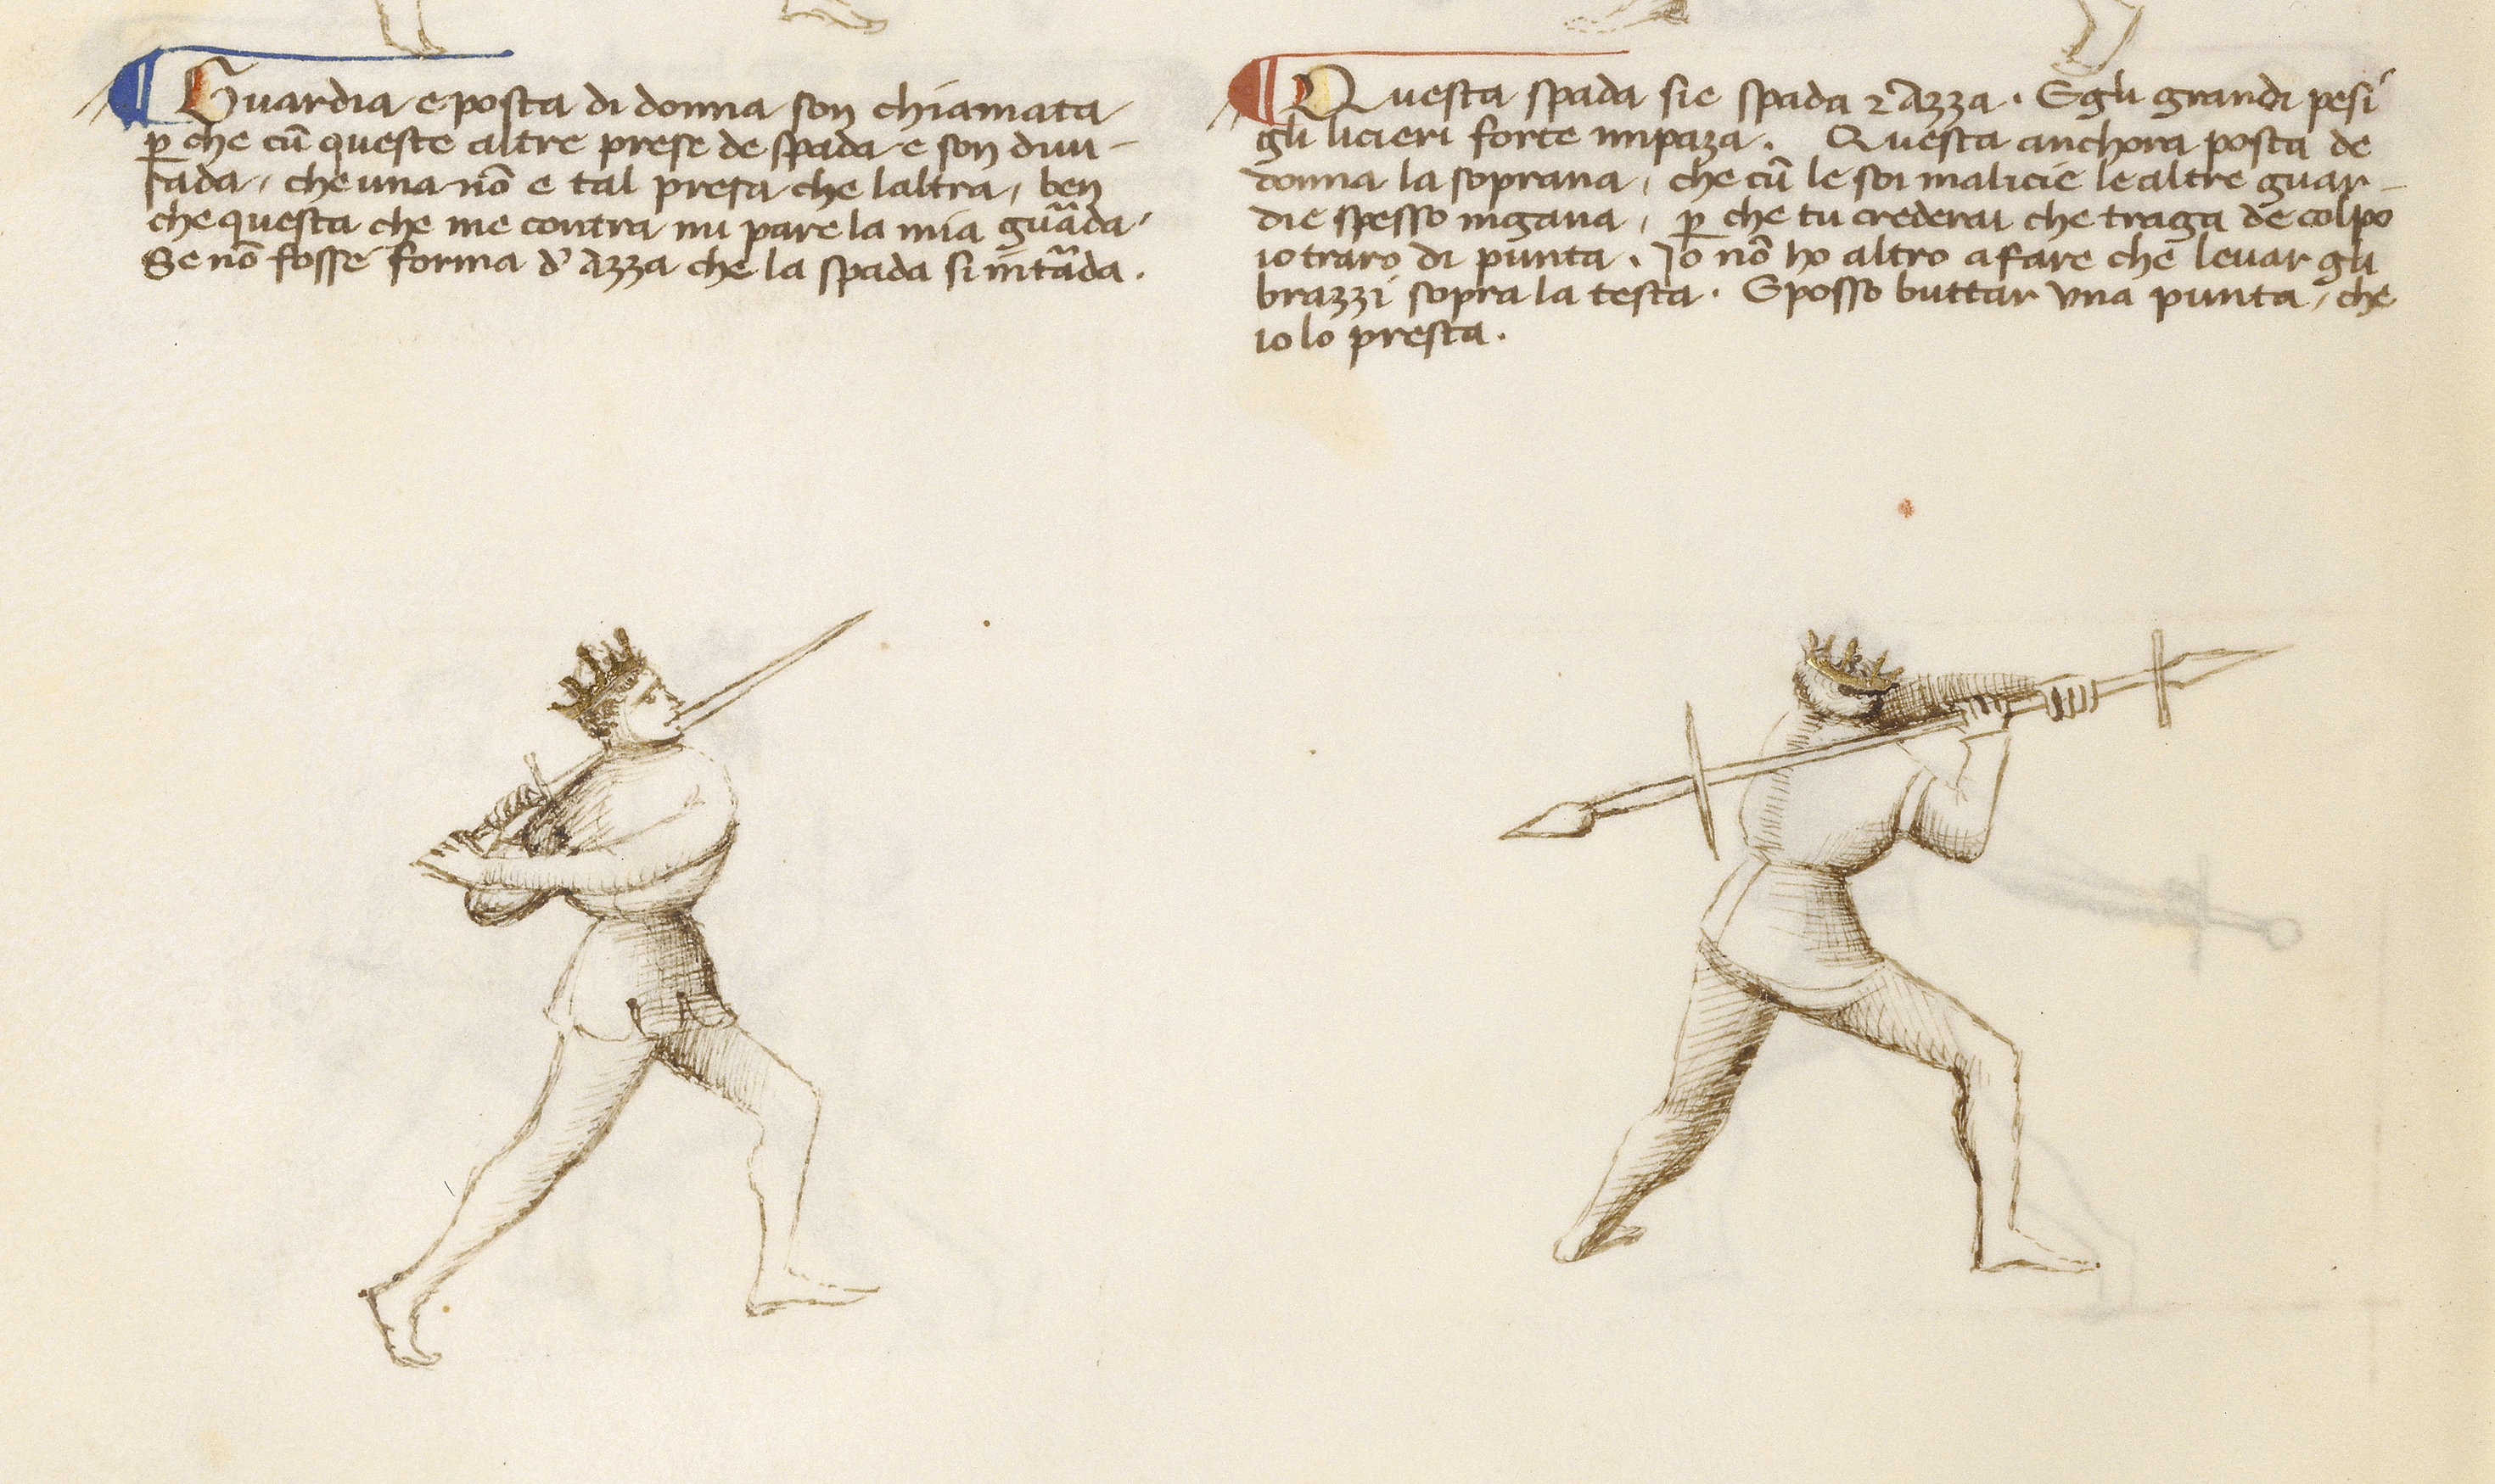 Guardia e posta di donna son chiamata
p̱ che cū queste altre prese de spada e son diui-
sada, che una nō e tal presa che laltra, ben
che questa che me contra mi pare la mia guāda,
Se nō fosse forma d'Azza che la spada si intāda.
Questa spada sie spada ⁊ Azza. E gli grandi pesi
gli licieri forte impaza. Questa anchora posta de
donna la soprana, che cū le soi malicie le altre guar-
die spesso ingana, p̱ che tu crederai che traga de colpo
io traro di punta. Io nō ho altro a fare che leuar gli
brazzi sopra la testa. E posso buttar una punta, che
io lo presta.